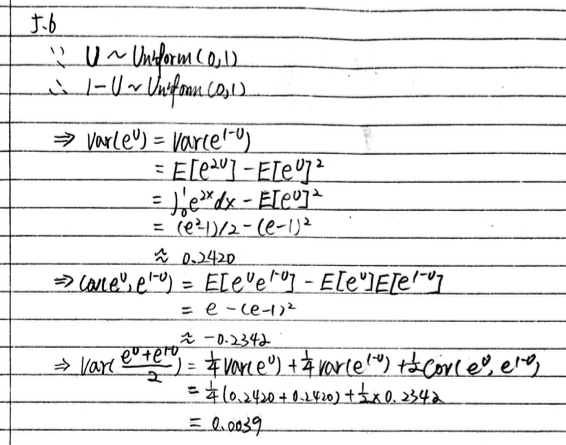 5.6
∵ U ~ Uniform(0,1)
∴ 1-U ~ Uniform(0,1)
⇒ Var(e^U) = Var(e^{1-U})
= E[e^{2U}] - E[e^U]^2
= ∫_0^1 e^{2x}dx - E[e^U]^2
= (e^2-1)/2 - (e-1)^2
≈ 0.2420
⇒ Cov(e^U, e^{1-U}) = E[e^U e^{1-U}] - E[e^U]E[e^{1-U}]
= e - (e-1)^2
≈ -0.2342
⇒ Var(\frac{e^U+e^{1-U}}{2}) = \frac{1}{4}Var(e^U) + \frac{1}{4}Var(e^{1-U}) + \frac{1}{2}Cov(e^U, e^{1-U})
= \frac{1}{4}(0.2420+0.2420) + \frac{1}{2}×0.2342
= 0.0039